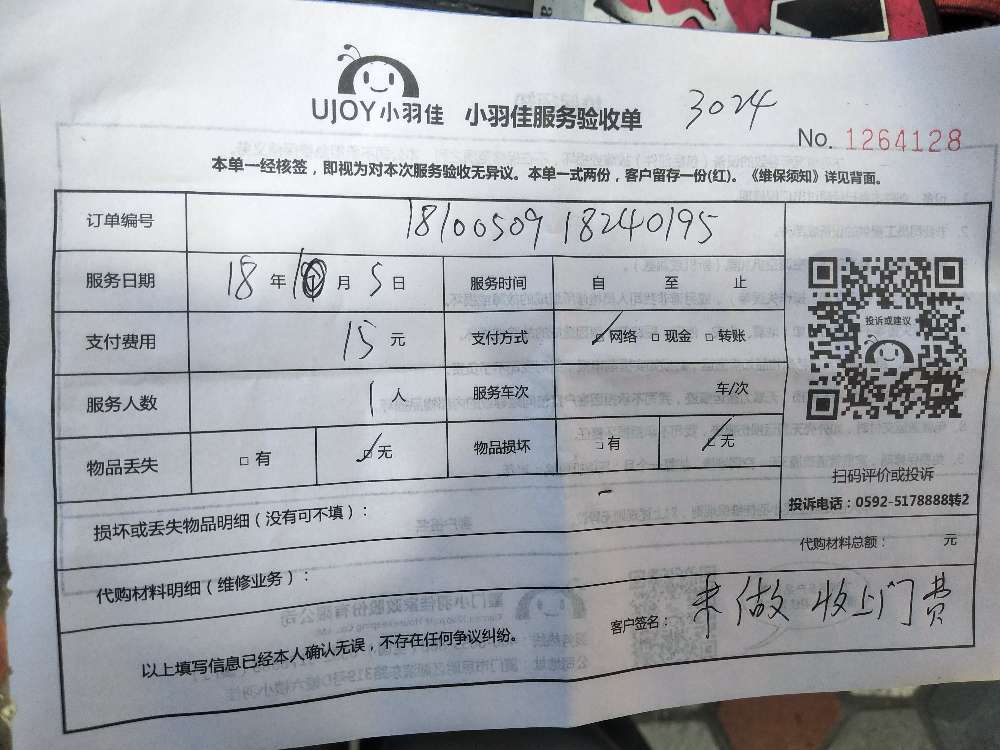 UJOY小羽佳 小羽佳服务验收单 3024
No. 1264128
本单一经核签，即视为对本次服务验收无异议。本单一式两份，客户留存一份(红)。《维保须知》详见背面。
订单编号 1810050918240195
服务日期 18 年 10 月 5 日 服务时间 自 至 止
投诉或建议
支付费用 15 元 支付方式 ☑网络 □现金 □转账
服务人数 1 人 服务车次 车/次
物品丢失 □有 ☑无 物品损坏 □有 ☑无
扫码评价或投诉
投诉电话：0592-5178888转2
损坏或丢失物品明细（没有可不填）：
代购材料总额： 元
代购材料明细（维修业务）：
客户签名： 未做 收上门费
以上填写信息已经本人确认无误，不存在任何争议纠纷。